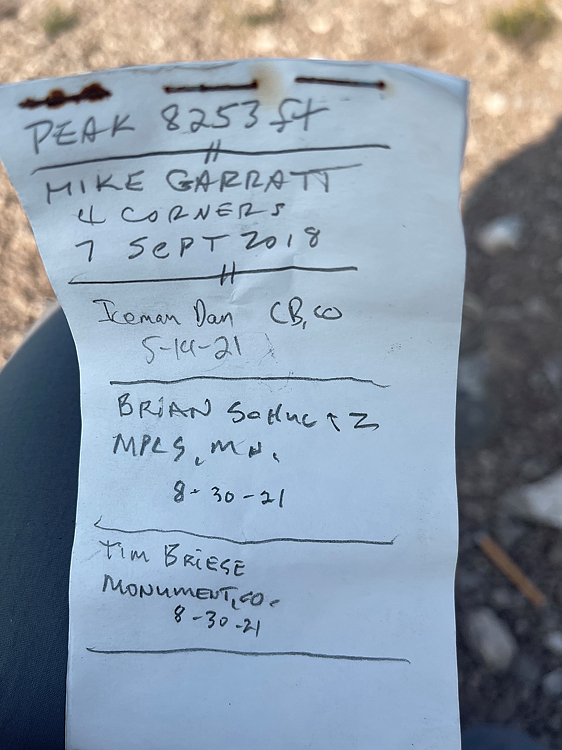 PEAK 8253 ft
MIKE GARRATT
4 CORNERS
7 SEPT 2018
Iceman Dan CB, CO
BRIAN
MPLS, MN.
8-30-21
Tim BRIESE
MONUMENT, CO.
8-30-21